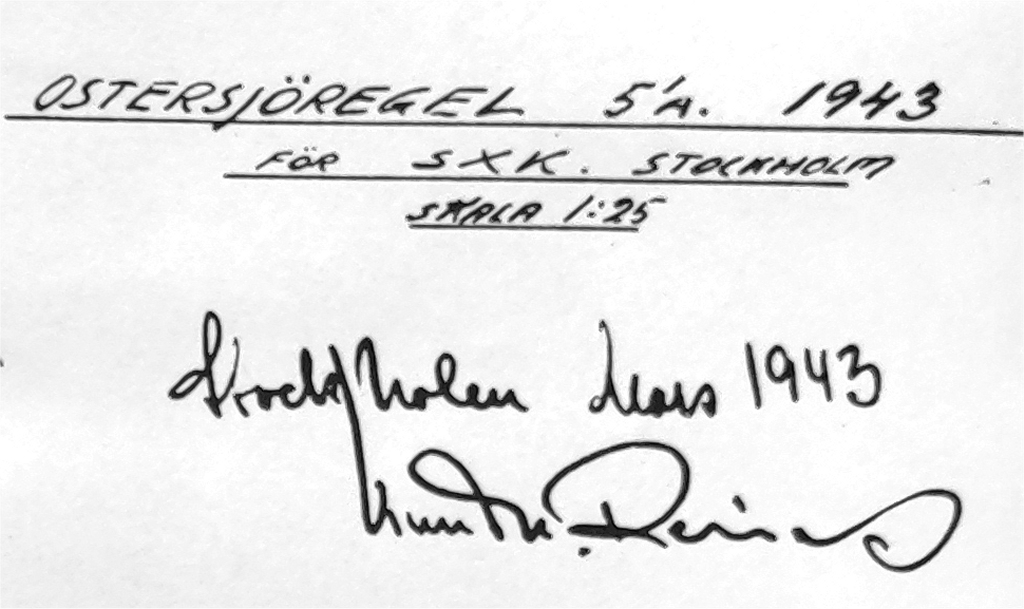 OSTERSJÖREGEL 5'A. 1943
FÖR SXK. STOCKHOLM
SKALA 1:25
Stockholm Mars 1943
Knud H. Reimers